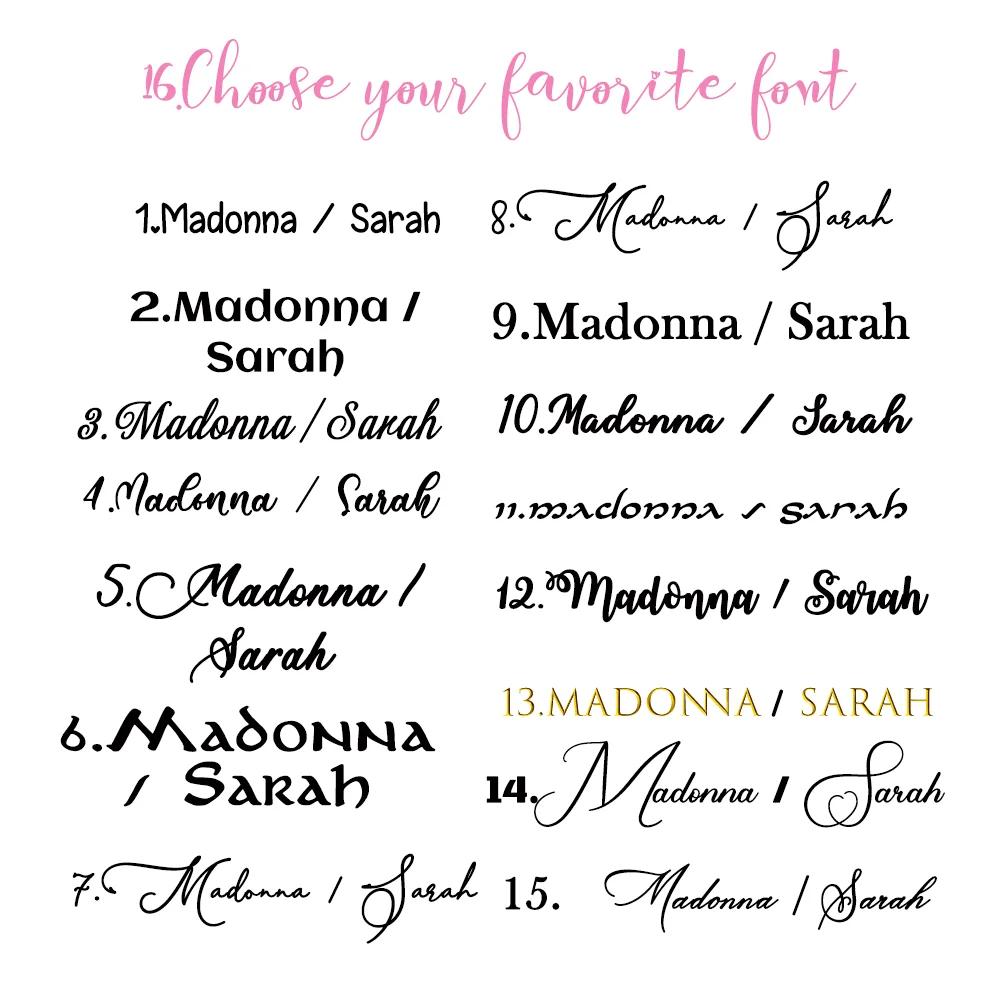 16.Choose your favorite font
1.Madonna / Sarah
2.Madonna /
Sarah
3.Madonna/Sarah
4.Madonna / Sarah
5.Madonna /
Sarah
6.Madonna
/ Sarah
7.Madonna / Sarah
8.Madonna / Sarah
9.Madonna / Sarah
10.Madonna / Sarah
11.madonna / sarah
12.Madonna / Sarah
13.MADONNA / SARAH
14.Madonna / Sarah
15. Madonna / Sarah